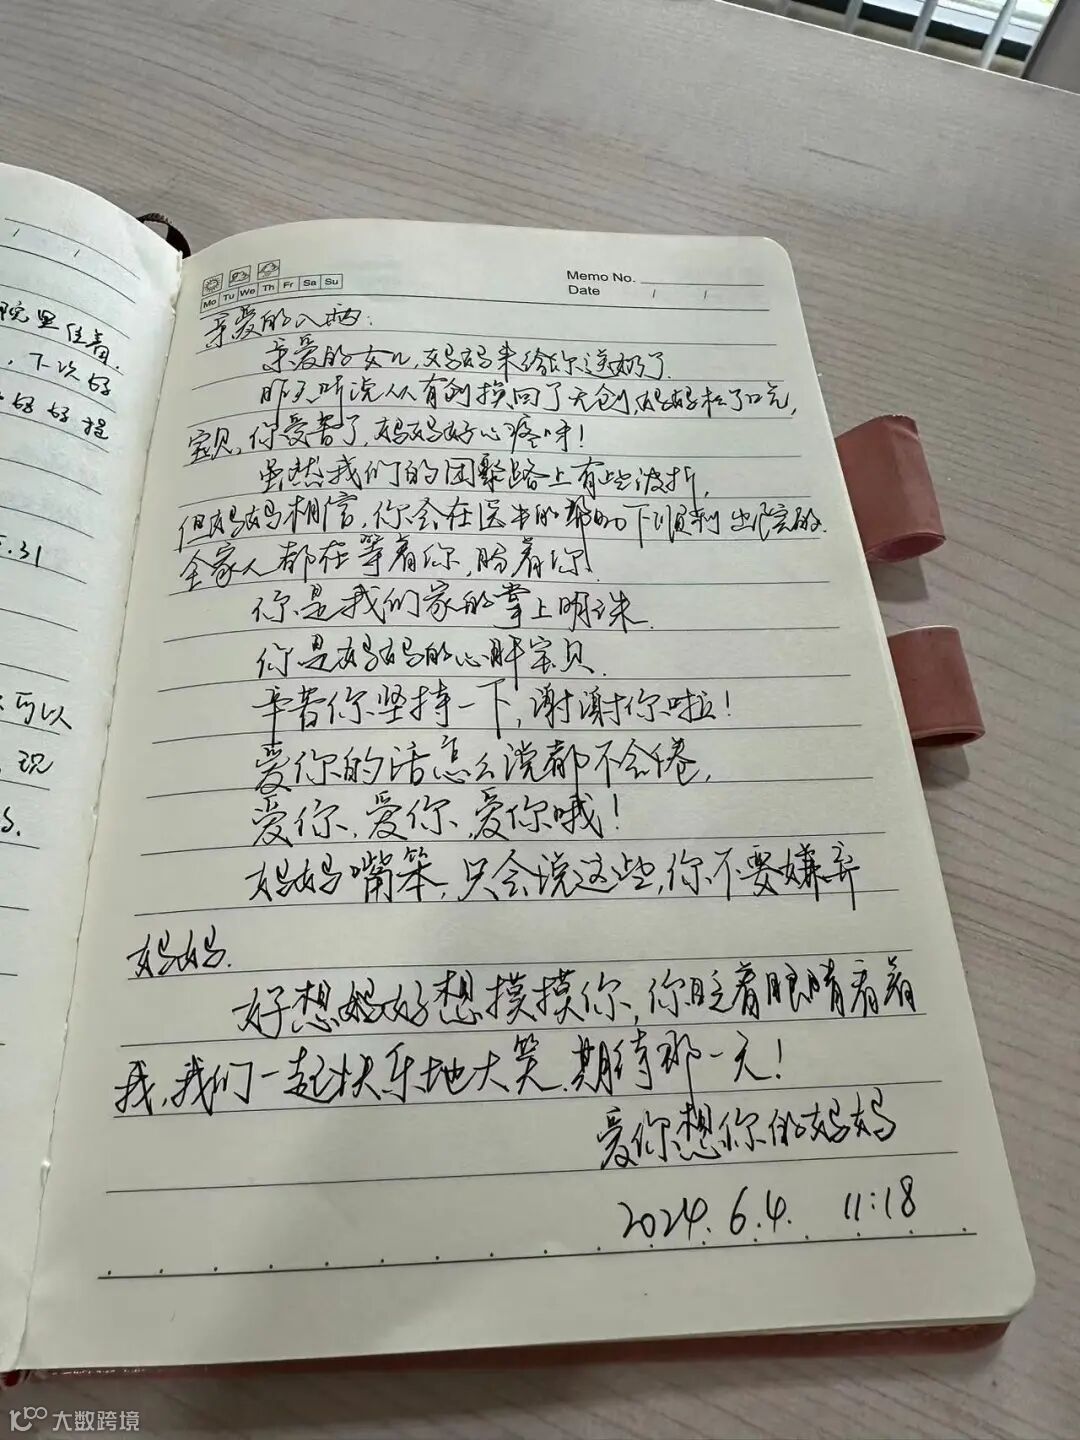 院里住着.
,下次好
好好捏
5.31
可以
,现
Mo Tu We Th Fr Sa Su
Memo No.
Date / /
亲爱的八两:
亲爱的女儿,妈妈来给你送奶了.
昨天听说从有创换回了无创,妈妈松了口气,
宝贝,你受苦了,妈妈好心疼呀!
虽然我们的团聚路上有些波折,
但妈妈相信,你会在医生的帮助下顺利出院的.
全家人都在等着你,盼着你!
你是我们家的掌上明珠.
你是妈妈的心肝宝贝.
辛苦你坚持一下,谢谢你啦!
爱你的话怎么说都不会倦,
爱你,爱你,爱你哦!
妈妈嘴笨,只会说这些,你不要嫌弃
妈妈.
好想好想摸摸你,你眨着眼睛看着
我,我们一起快乐地大笑.期待那一天!
爱你想你的妈妈
2024.6.4. 11:18
大数跨境